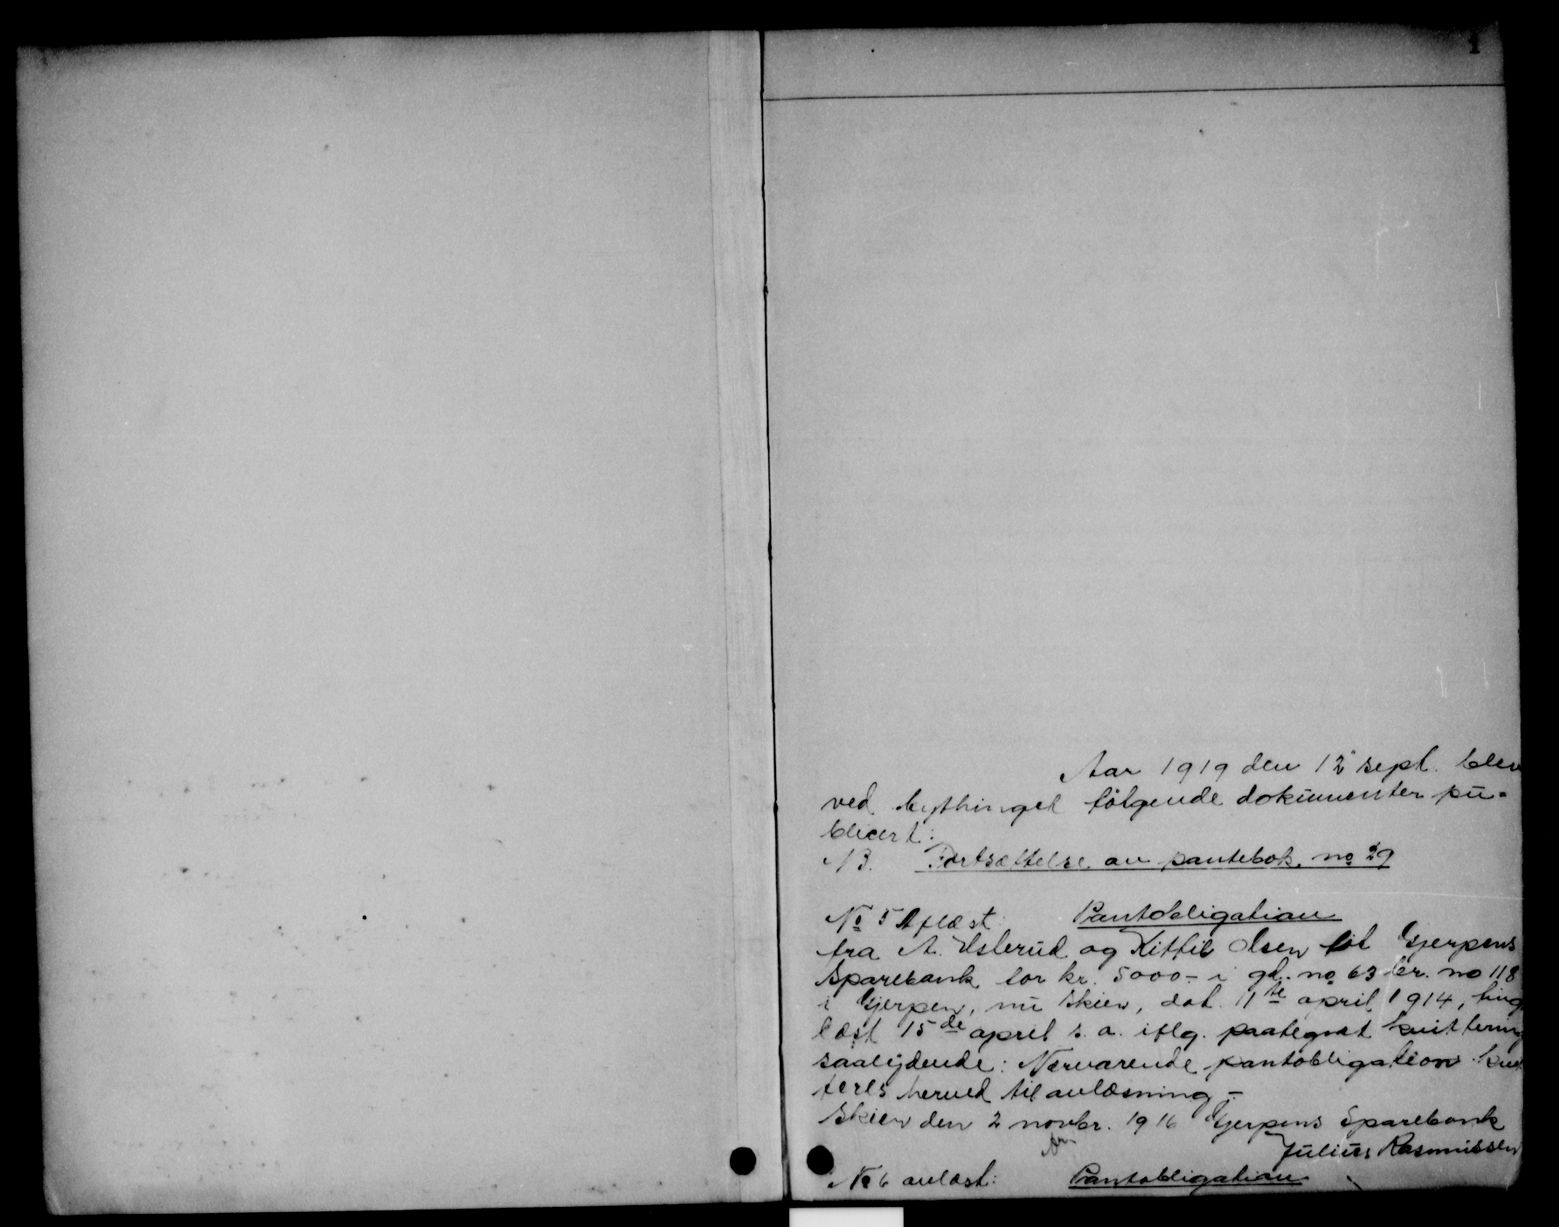 1
Aar 1919 den 12 sept. blev
ved bythinget følgende dokumenter pu-
blicert:
NB. Fortsættelse av pantebok no 29
No 5 Aflæst: Pantobligation
fra A. Østerud og Kittil Olsen til Gjerpens
Sparebank for kr. 5000.- i gd. no 63 br. no 118
i Gjerpen, nu Skien, dat. 11te april 1914, ting
læst 15de april s. a. iflg. paategnet kvittering
saalydende: Nærværende pantobligation kvit
teres herved til avlæsning -
Skien den 2 novbr. 1916 Gjerpens Sparebank
Julius Rasmussen
No 6 avlæst: Pantobligation